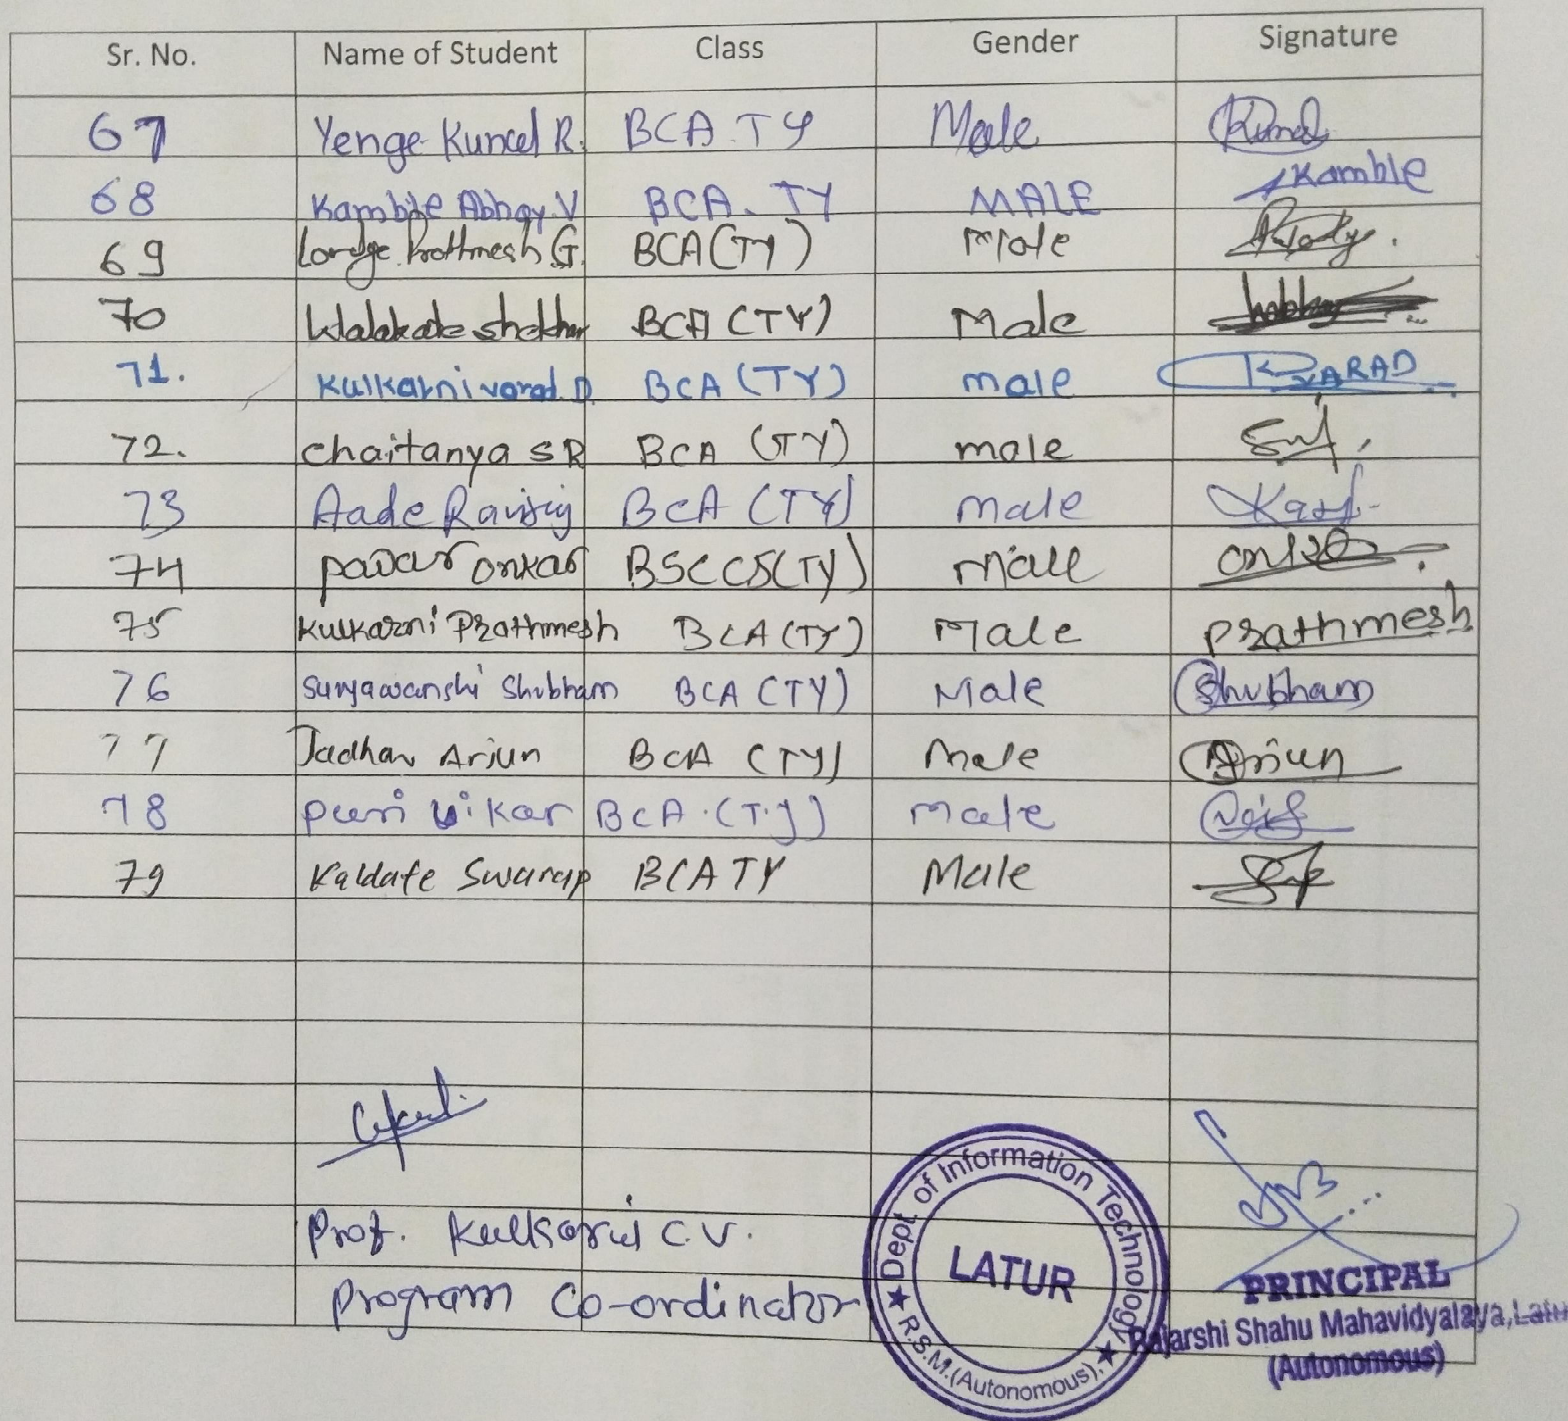 Sr. No. Name of Student Class Gender Signature
67 Yenge Kunal R. BCA TY Male Kunal
68 Kamble Abhay V BCA. TY MALE Kamble
69 Prathmesh G. BCA (TY) Male
70 Walakate shekhar BCA (TY) Male
71. Kulkarni varad D BCA (TY) male VARAD
72. Chaitanya S R BCA (TY) male
73 Aade BCA (TY) male
74 pavar onkar BSC CS (TY) Male onkar
75 Kulkarni Prathmesh BCA (TY) Male Prathmesh
76 Suryawanshi Shubham BCA (TY) Male Shubham
77 Jadhav Arjun BCA (TY) Male Arjun
78 puri BCA. (T.Y) Male
79 Kaldate Swarup BCA TY Male
Prof. Kulkarni C.V.
Program Co-ordinator
Dept of Information Technology
LATUR
★ R.S.M. (Autonomous), ★
PRINCIPAL
Rajarshi Shahu Mahavidyalaya, Latu
(Autonomous)